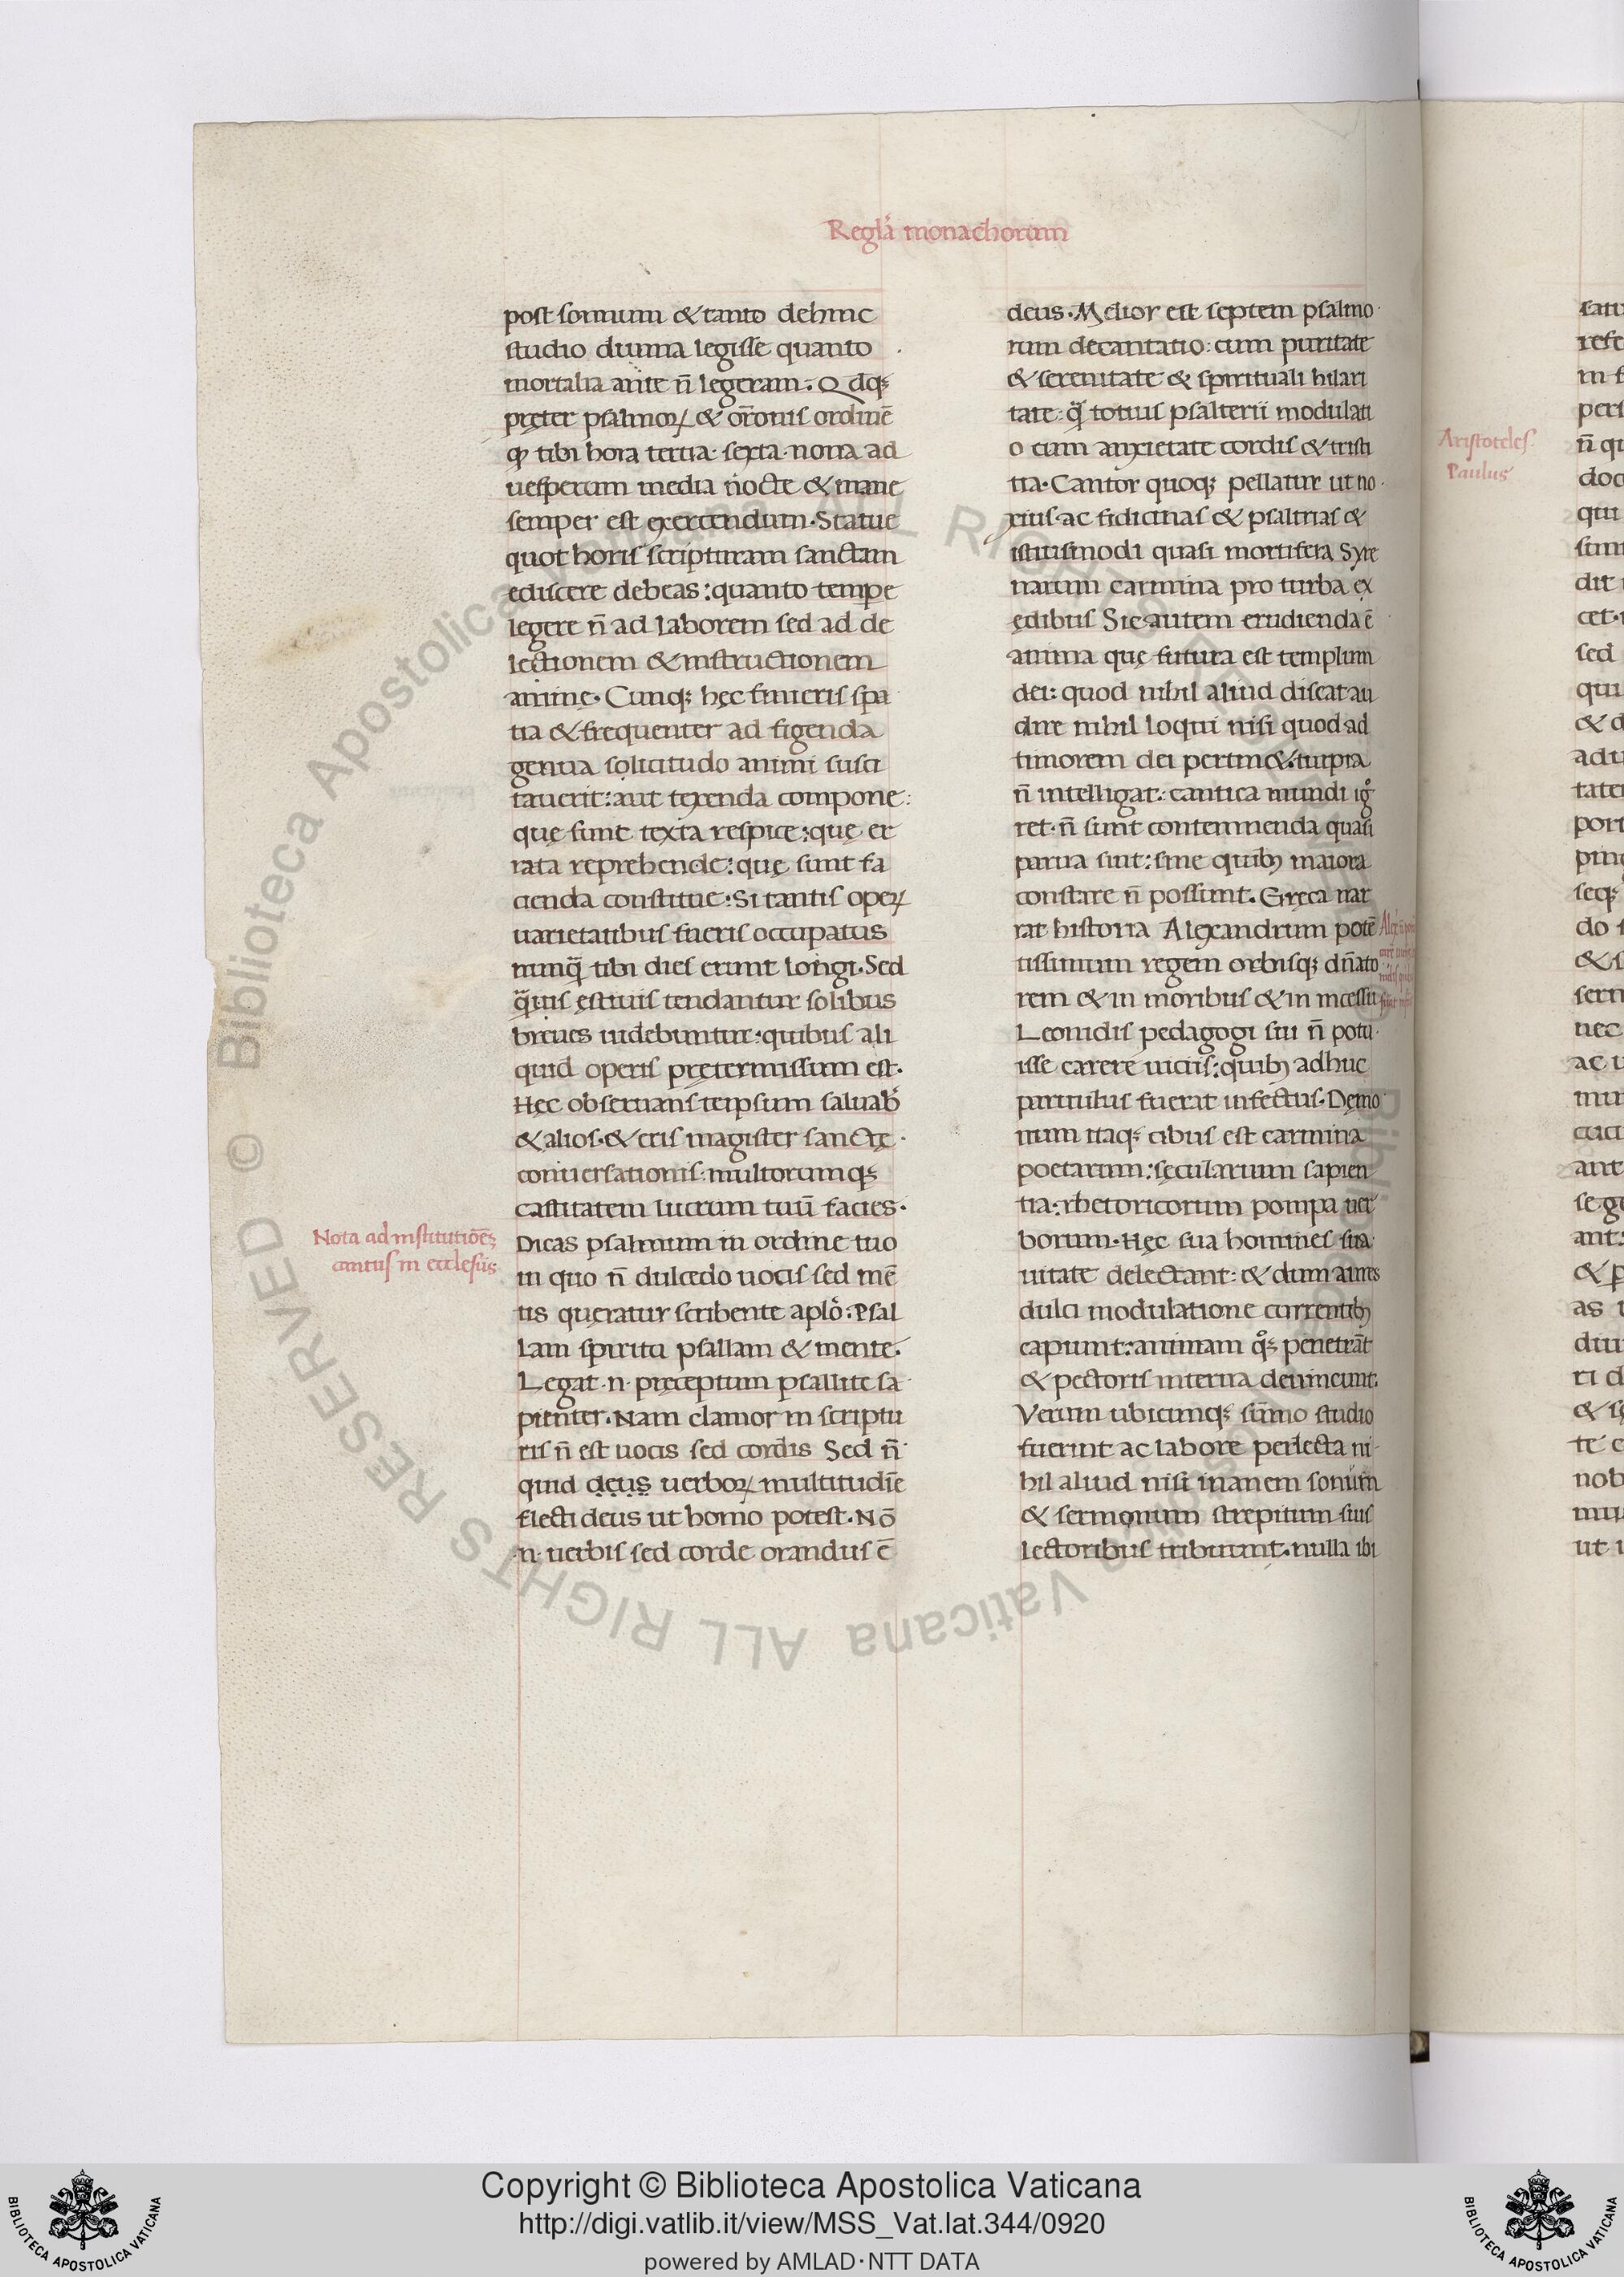 Reglã monachorum
post somnum & tanto dehinc
studio diuina legisse quanto
mortalia ante ñ legeram. Qdq;
pręter psalmoꝝ & orõnis ordinē
ꝙ tibi hora tertia· sexta· nona ad
uesperum media nocte & mane
semper est exercendum. Statue
quot horis scripturam sanctam
ediscere debeas: quanto tempe
legere ñ ad laborem sed ad de
lectionem & instructionem
animę. Cunq; hęc finieris spa
tia & frequenter ad figenda
genua solicitudo animi susci
tauerit: aut texenda compone:
quę sunt texta respice: quę er
rata reprehende: quę sunt fa
cienda constitue: Si tantis operꝝ
uarietatibus fueris occupatus
nunq̃ tibi dies erunt longi. Sed
q̃uis ęstiuis tendantur solibus
breues uidebuntur: quibus ali
quid operis pretermissum est.
Hęc obseruans teipsum saluab̃
& alios. & eris magister sanctę
conuersationis: multorumq;
castitatem lucrum tuū facies.
Nota ad institutiōes
cantus in ecclesiis
Dicas psalmum in ordine tuo
in quo ñ dulcedo uocis sed mē
tis queratur scribente aplõ: Psal
lam spiritu psallam & mente.
Legat ·n· pręceptum psallite sa
pienter. Nam clamor in scriptu
ris ñ est uocis sed cordis Sed ñ
quid deus uerboꝝ multitudīe
flecti deus ut homo potest. Nō
·n· uerbis sed corde orandus ē
deus. Melior est septem psalmo
rum decantatio: cum puritate
& serenitate & spirituali hilari
tate: q̃ totius psalterii modulati
o cum anxietate cordis & tristi
tia. Cantor quoq; pellatur ut no
xius· ac fidicinas & psaltrias &
istiusmodi quasi mortifera Syre
narum carmina pro turba ex
ędibus Sic autem erudienda ē
anima quę futura est templum
dei: quod nihil aliud discat au
dire nihil loqui nisi quod ad
timorem dei pertin&. turpia
ñ intelligat: cantica mundi igͦ
ret· ñ sunt contemnenda quasi
parua sint: sine quibꝰ maiora
constare ñ possunt. Gręca nar
rat historia Alexandrum potē
tissimum regem orbisq; dñato
rem & in moribus & in incessu
Leonidis pedagogi sui ñ potu
isse carere uiciis: quibꝰ adhuc
paruulus fuerat infectus. Dęmo
num itaq; cibus est carmina
poetarum: sęcularium sapien
tia: rhetoricorum pompa uer
borum. Hęc sua homines sua
uitate delectant: & dum aures
dulci modulatione currentibꝰ
capiunt: animam qͦ; penetrãt
& pectoris interna deuincunt.
Verum ubicunq; sūmo studio
fuerint ac labore perlecta ni
hil aliud nisi inanem sonum
& sermonum strepitum suis
lectoribus tribuunt. nulla ibi
Aristoteles.
Paulus
© Biblioteca Apostolica Vaticana ALL RIGHTS RESERVED
Copyright © Biblioteca Apostolica Vaticana
http://digi.vatlib.it/view/MSS_Vat.lat.344/0920
powered by AMLAD·NTT DATA
BIBLIOTECA APOSTOLICA VATICANA
BIBLIOTECA APOSTOLICA VATICANA